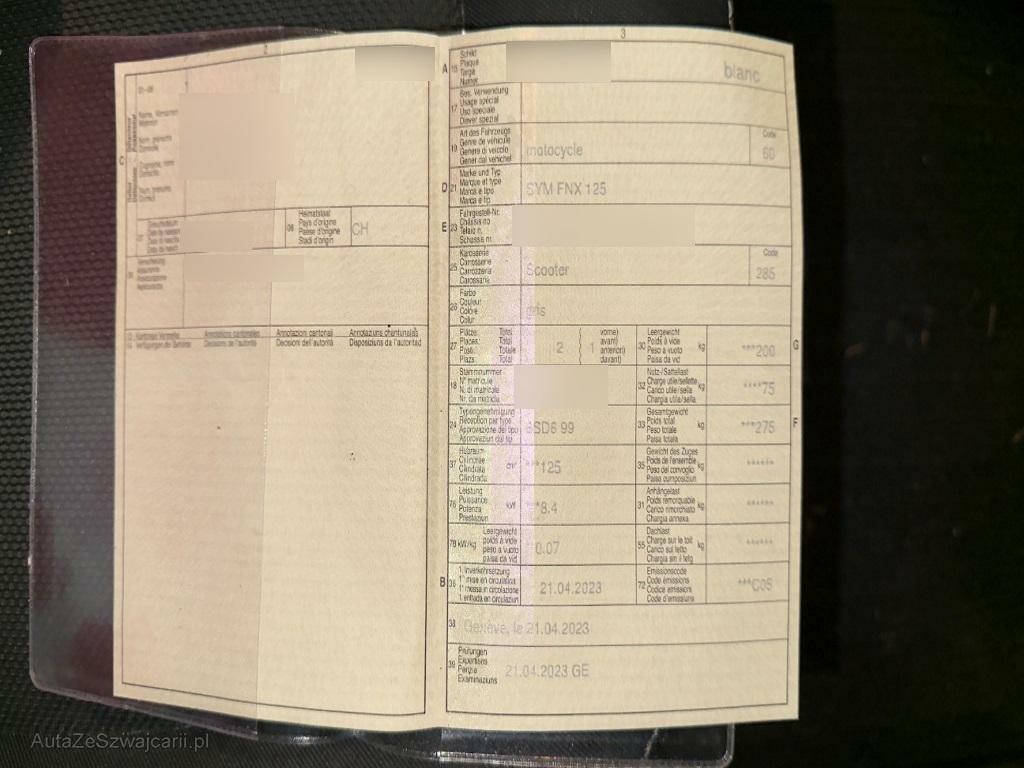 2
3
C
01-06
Name, Vornamen
Wohnort
Nom, prénoms
Domicile
Cognome, nomi
Domicilio
Num, prenums
Domicil
09
Heimatstaat
Pays d'origine
Paese d'origine
Stadi d'origin
CH
Versicherung
Assurance
Assicurazione
Kantonale Vermerke
Verfügungen der Behörde
Annotations cantonales
Décisions de l'autorité
Annotazioni cantonali
Decisioni dell'autorità
Annotaziuns chantunalas
Disposiziuns da l'autoritad
A
15
Schild
Plaque
Targa
Numer
blanc
17
Bes. Verwendung
Usage spécial
Uso speciale
Diever spezial
19
Art des Fahrzeugs
Genre de véhicule
Genere di veicolo
Gener dal vehichel
motocycle
Code
60
D
21
Marke und Typ
Marque et type
Marca e tipo
Marca e tip
SYM FNX 125
E
23
Fahrgestell-Nr.
Châssis no
Telaio n.
Schassis nr.
25
Karosserie
Carrosserie
Carrozzeria
Carossaria
Scooter
Code
285
26
Farbe
Couleur
Colore
Colur
gris
27
Plätze: Total
Places: Total
Posti: Totale
Plazs: Total
2
( 1
vorne)
avant)
anteriori)
davant)
30
Leergewicht
Poids à vide
Peso a vuoto
Paisa da vid
kg
***200
G
18
Stammnummer
N° matricule
N. di matricola
Nr. da matricla
32
Nutz-/Sattellast
Charge utile/sellette
Carico utile/sella
Chargia utila/sella
kg
****75
24
Typengenehmigung
Réception par type
Approvazione del tipo
Approvaziun dal tip
6SD6 99
33
Gesamtgewicht
Poids total
Peso totale
Paisa totala
kg
***275
F
37
Hubraum
Cylindrée
Cilindrata
Cilindrada
cm³
***125
35
Gewicht des Zuges
Poids de l'ensemble
Peso del convoglio
Paisa cumposiziun
kg
******
76
Leistung
Puissance
Potenza
Prestaziun
kW
***8.4
31
Anhängelast
Poids remorquable
Carico rimorchiato
Chargia annexa
kg
******
78 kW/kg
Leergewicht
poids à vide
peso a vuoto
paisa da vid
0.07
55
Dachlast
Charge sur le toit
Carico sul tetto
Chargia sin il tetg
kg
******
B
36
1. Inverkehrsetzung
1re mise en circulation
1a messa in circolazione
1. entrada en circulaziun
21.04.2023
72
Emissionscode
Code émissions
Codice emissioni
Code d'emissiuns
***C05
38
Genève, le 21.04.2023
39
Prüfungen
Expertises
Perizie
Examinaziuns
21.04.2023 GE
AutaZeSzwajcarii.pl